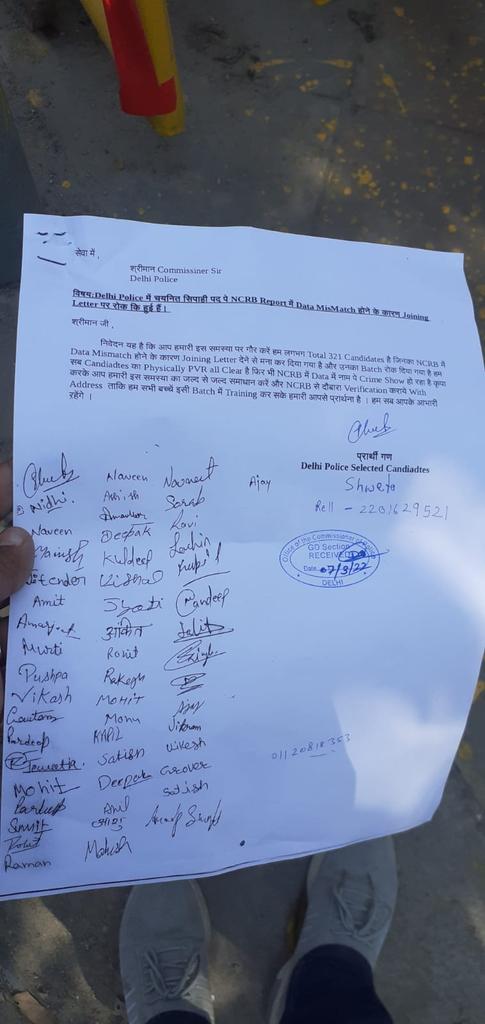 सेवा में ,
श्रीमान Commissiner Sir
Delhi Police
विषय:Delhi Police में चयनित सिपाही पद पे NCRB Report में Data MisMatch होने के कारण Joining
Letter पर रोक कि हुई हैं।
श्रीमान जी ,
निवेदन यह है कि आप हमारी इस समस्या पर गौर करें हम लगभग Total 321 Candidates है जिनका NCRB में
Data Mismatch होने के कारण Joining Letter देने से मना कर दिया गया है और उनका Batch रोक दिया गया है हम
सब Candiadtes का Physically PVR all Clear है फिर भी NCRB में Data में नाम पे Crime Show हो रहा है कृपा
करके आप हमारी इस समस्या का जल्द से जल्द समाधान करें और NCRB से दौबारा Verification कराये With
Address ताकि हम सभी बच्चें इसी Batch में Training कर सके हमारी आपसे प्रार्थना है । हम सब आपके आभारी
रहेंगे ।
प्रार्थी गण
Delhi Police Selected Candiadtes
Shweta
Roll - 2201629521
Office of the Commissioner of Police
GD Section
RECEIVED
Date 07/3/22
DELHI
Naveen Navneet Ajay
Nidhi. Sarab
Naveen Deepak Ravi
Manish Kuldeep Sachin
Jitender Vishal Kapil
Amit Jyoti Mandeep
अंकित Lalit
Murti Rohit
Pushpa Rakesh
Vikash MOHIT Ajay
Gautam Monu Vikram
Pardeep KAPIL Vikesh
Satish Grover
Mohit Deepak Satish
Pardeep Anil
Sumit आशु Anup Singh
Rohit Mahesh
Raman
01120818353